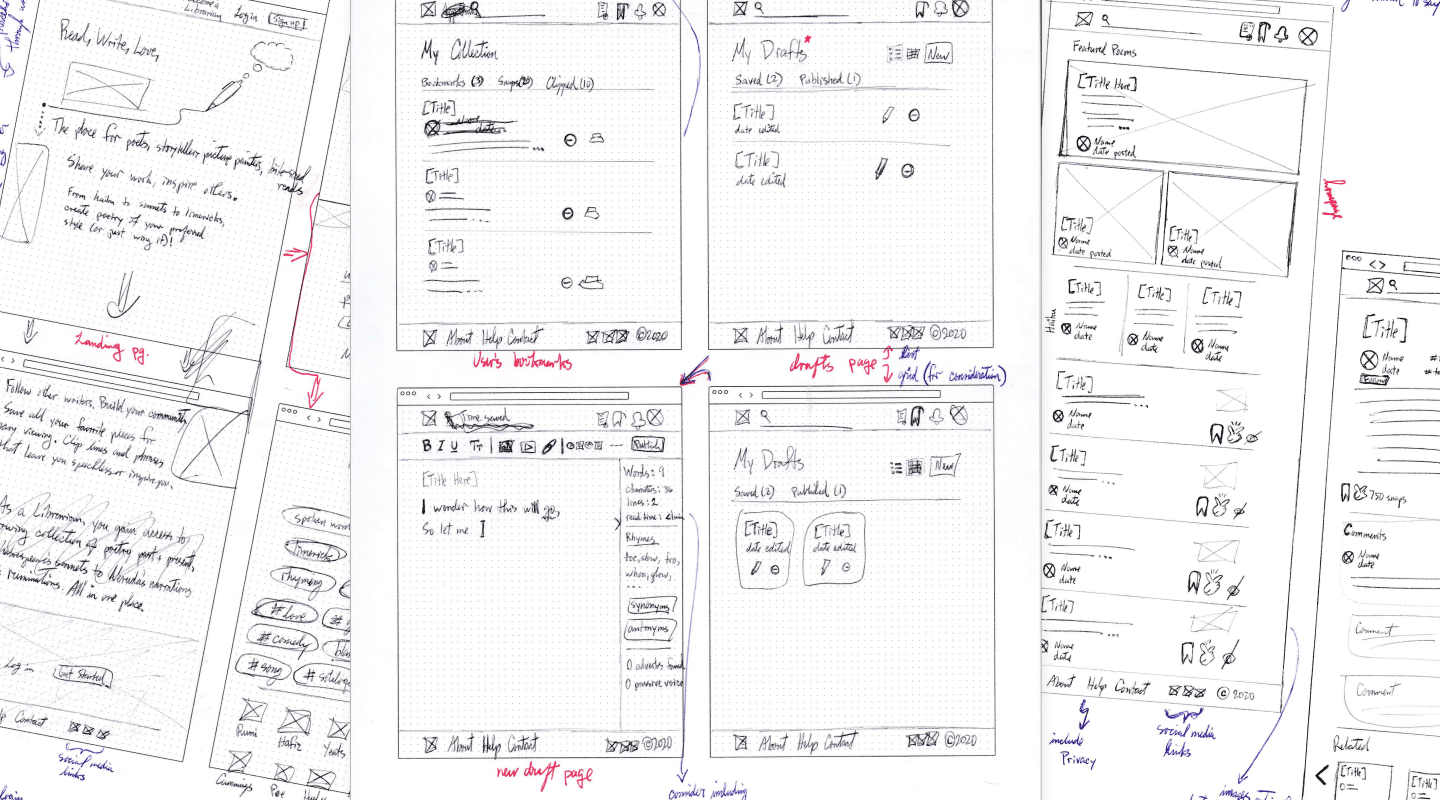 Become a
Librarian Log in Sign up
Read, Write, Love,
The place for poets, storytellers, picture painters,
reads
Share your work, inspire others.
From haiku to sonnets to limericks,
create poetry of your preferred
style (or just wing it)!
Landing pg.
Follow other writers. Build your community.
Save all your favorite pieces for
viewing. Clip lines and phrases
that leave you speechless or inspire you.
As a Librarian, you gain access to
growing collection of poetry past + present,
sonnets to Nerudas narrations
ruminations. All in one place.
Log in Get Started
Contact
social media
links
spoken word
limerick
rhyming
#love
#comedy
#song
Rumi
Hafiz
Yeats
Cummings
Poe
My Collection
Bookmarks (3) Snaps(20) Clipped (10)
[Title]
Name
date
...
[Title]
[Title]
About Help Contact ©2020
User's bookmarks
My Drafts*
New
Saved (2) Published (1)
[Title]
date edited
[Title]
date edited
About Help Contact ©2020
drafts page
list
grid (for consideration)
Time saved
B I U TT ... Publish
[Title Here]
I wonder how this will go,
So let me
Words: 9
characters: 36
lines: 2
read time: <1min
Rhymes
toe, slow, fro,
whoa, glow,
...
synonyms
antonyms
0 adverbs found
0 passive voice
About Help Contact ©2020
new draft page
consider including
My Drafts
New
Saved (2) Published (1)
[Title]
date edited
[Title]
date edited
About Help Contact ©2020
Featured Poems
[Title Here]
...
Name
date posted
[Title]
Name
date posted
[Title]
Name
date posted
Haiku
[Title] [Title] [Title]
Name
date
Name
date
Name
date
[Title]
Name
date
[Title]
Name
date
[Title]
Name
date
[Title]
Name
date
About Help Contact © 2020
include
Privacy
social media
links
images
homepage
[Title]
Name
date
Follow
750 snaps
Comments
Name
date
Comment
Comment
Related
[Title]
[Title]